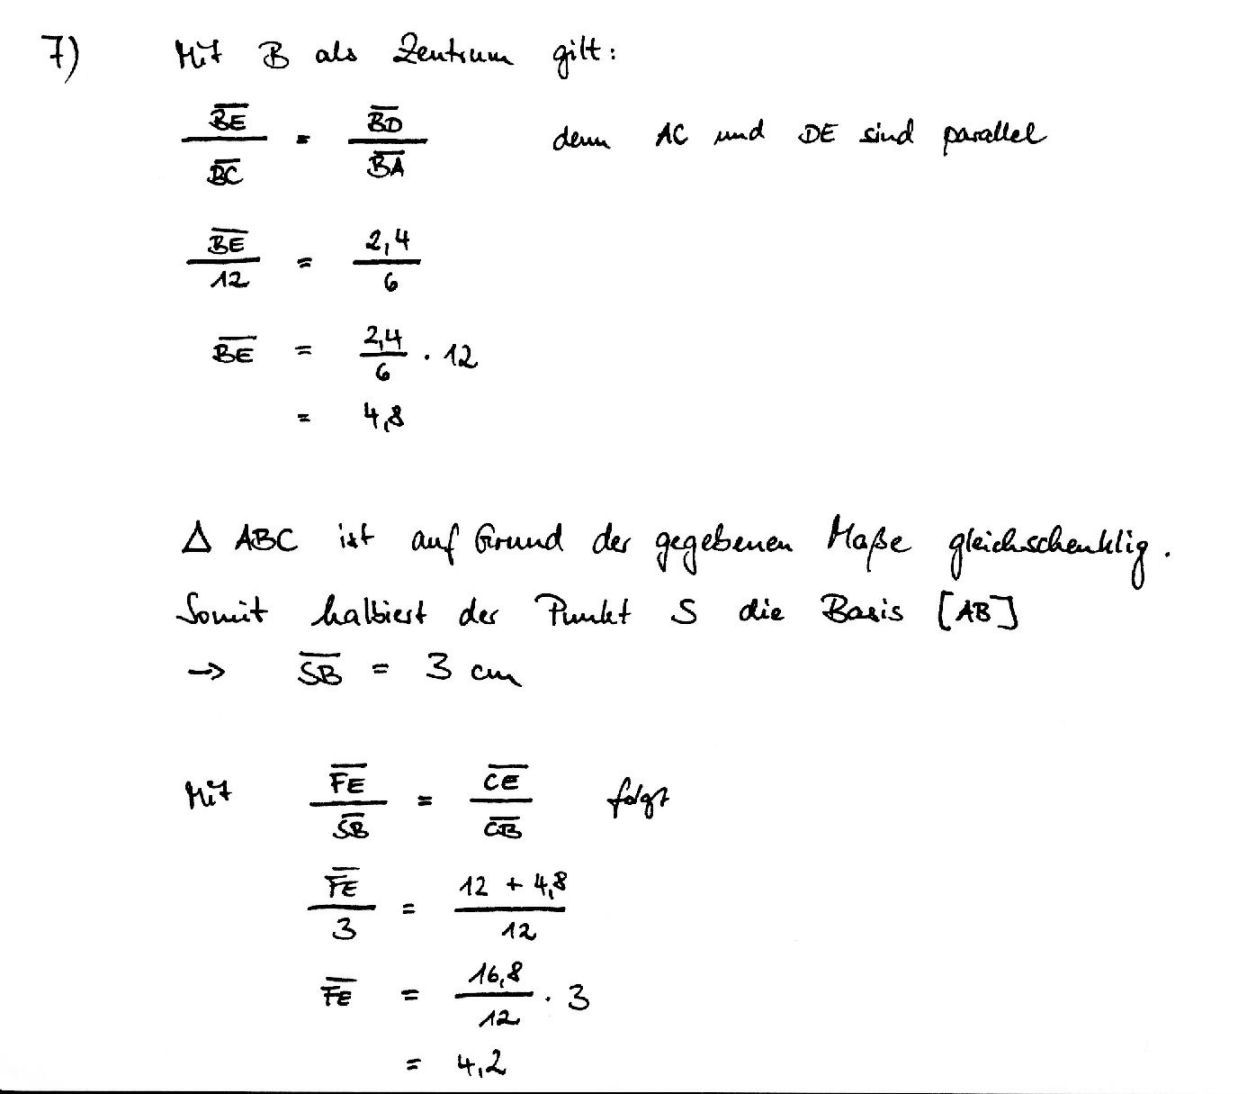 7) Mit B als Zentrum gilt:
B̅E̅ / B̅C̅ = B̅D̅ / B̅A̅ denn AC und DE sind parallel
B̅E̅ / 12 = 2,4 / 6
B̅E̅ = 2,4 / 6 · 12
= 4,8
Δ ABC ist auf Grund der gegebenen Maße gleichschenklig.
Somit halbiert der Punkt S die Basis [AB]
→ S̅B̅ = 3 cm
Mit F̅E̅ / S̅B̅ = C̅E̅ / C̅B̅ folgt
F̅E̅ / 3 = 12 + 4,8 / 12
F̅E̅ = 16,8 / 12 · 3
= 4,2